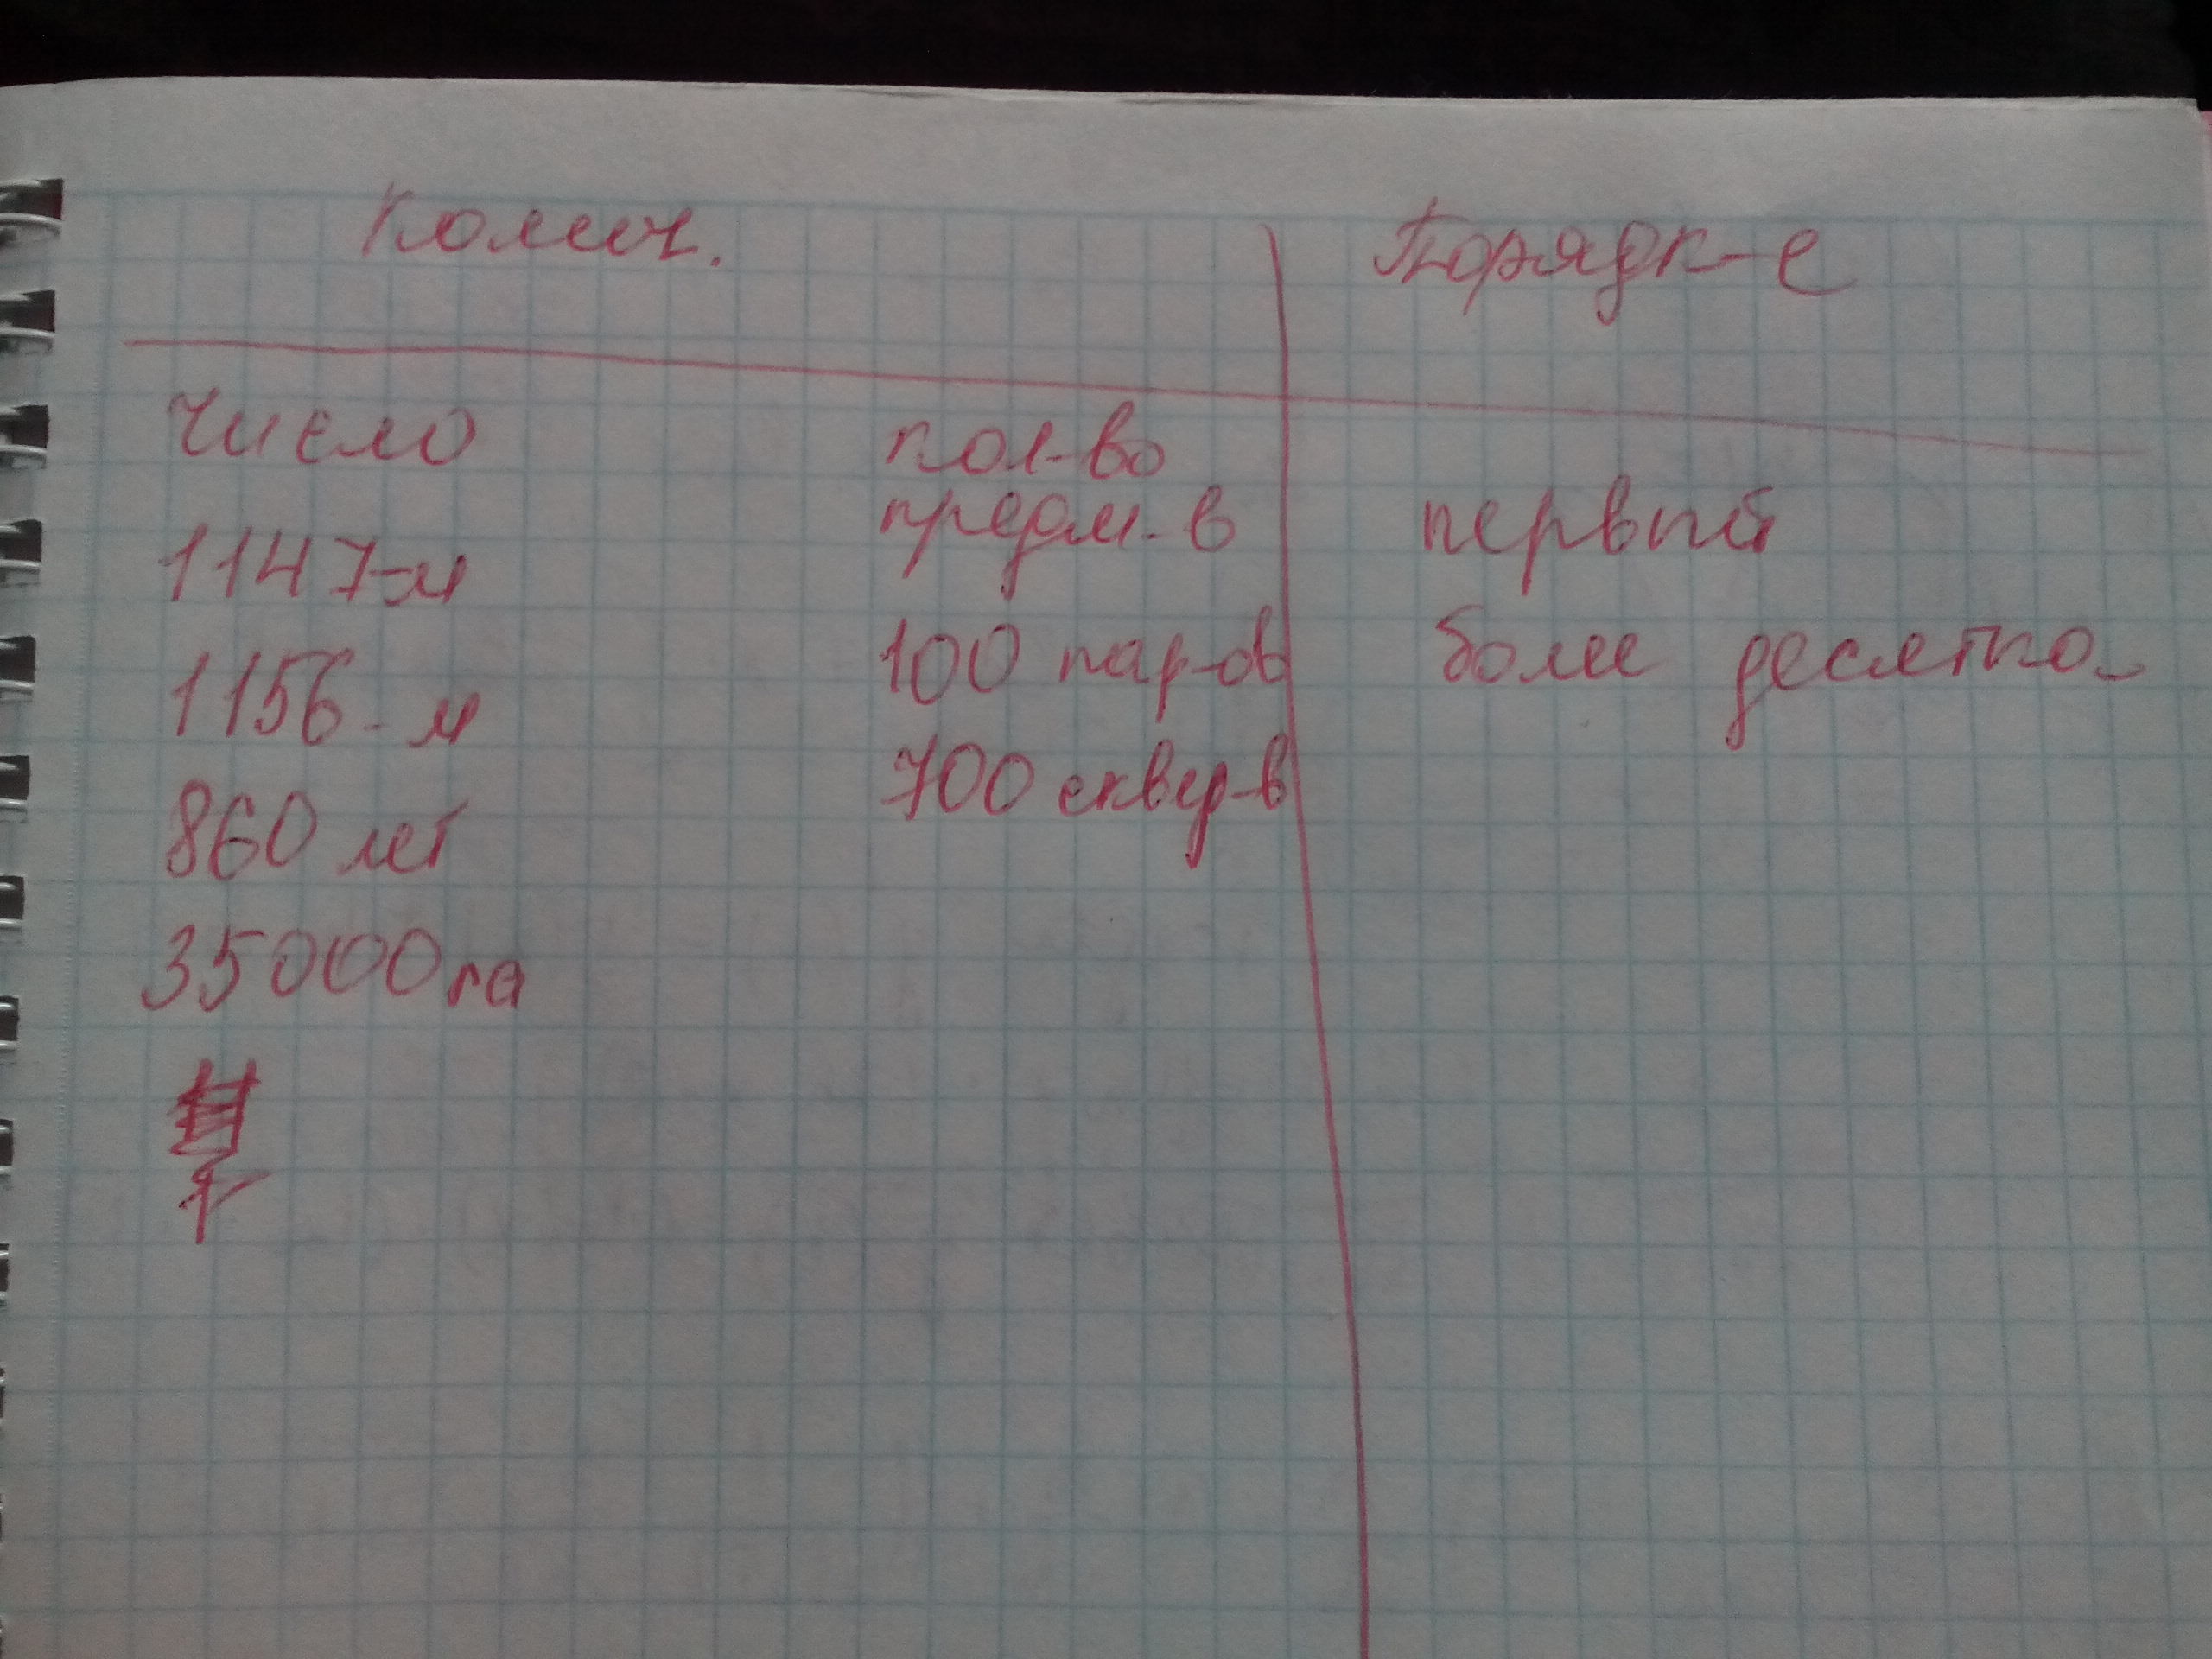 Колич.
Порядк-е
число
кол-во
предм-в
1147-м
1156-м
860 лет
35000 га
100 пар-ов
700 сквер-в
первый
более десетко-